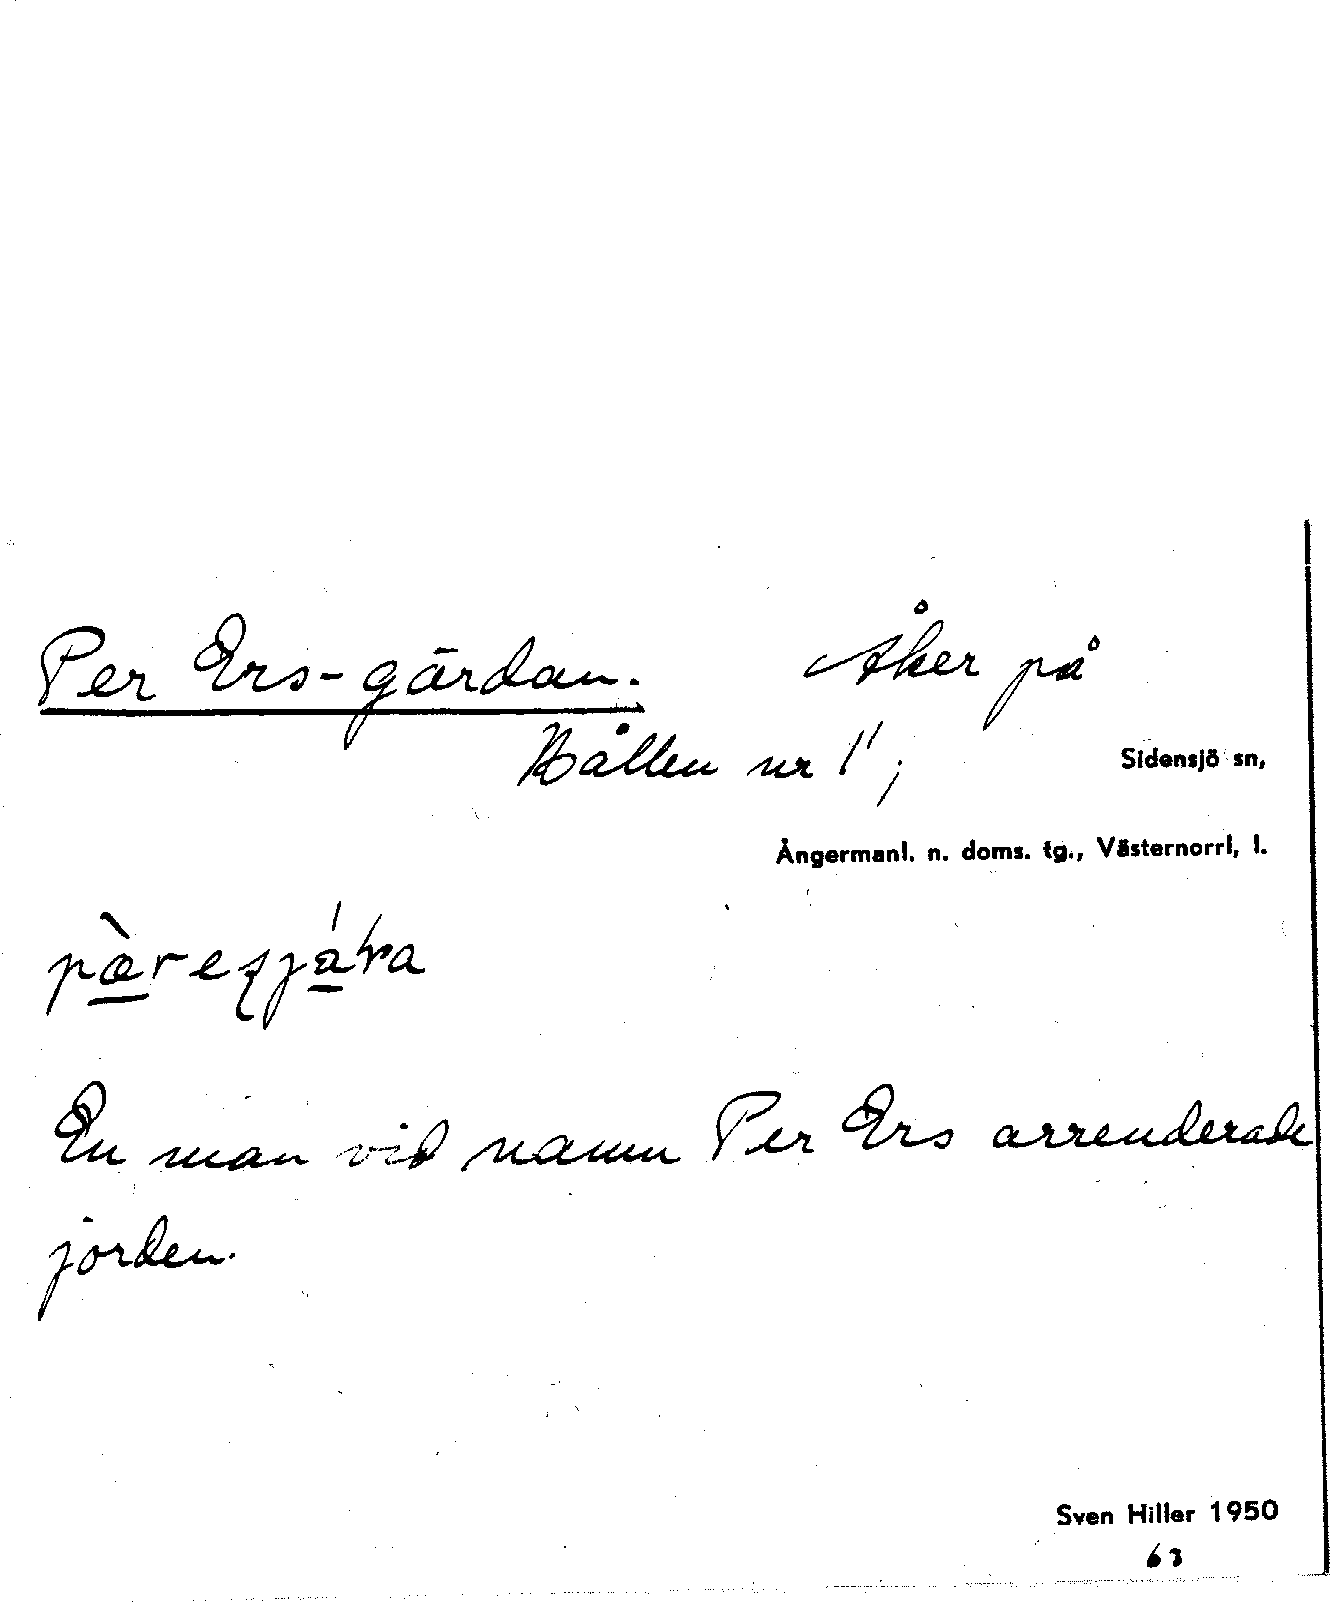 Per Ers-gärdan. Åker på
Hållen nr 1¹;
Sidensjö sn,
Ångermanl. n. doms. tg., Västernorrl, l.
En man vid namn Per Ers arrenderade
jorden.
Sven Hiller 1950
63